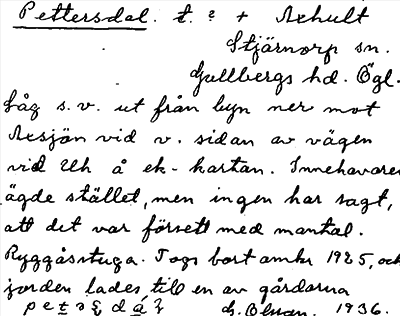 Pettersdal. t. ? + Axhult
Stjärnorp sn.
Gullbergs hd. Ögl.
Låg s.v. ut från byn ner mot
Axsjön vid v. sidan av vägen
vid Uh å ek-kartan. Innehavaren
ägde stället, men ingen har sagt,
att det var försett med mantal.
Ryggåsstuga. Togs bort omkr 1925, och
jorden lades till en av gårdarna
G. Olsson. 1936.